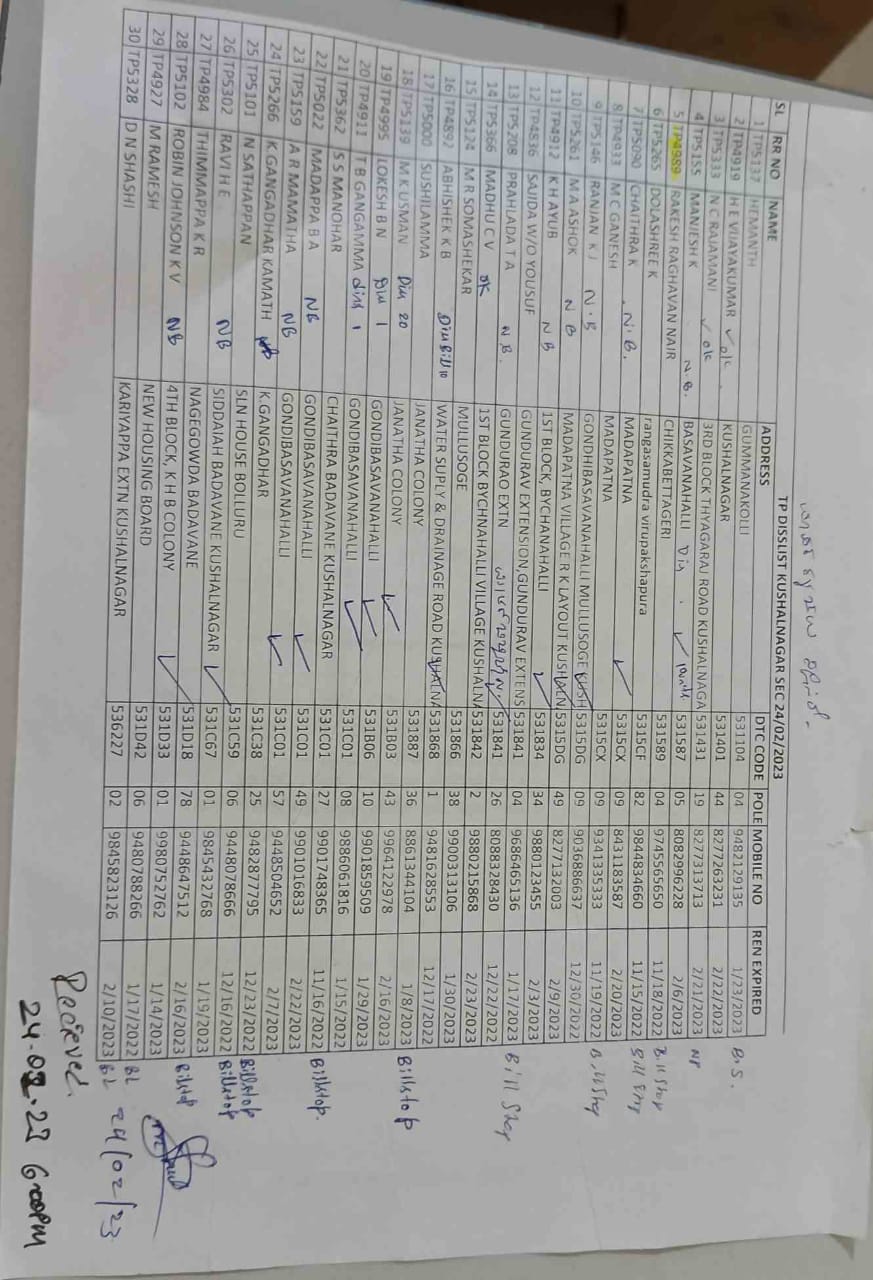 TP DISSLIST KUSHALNAGAR SEC 24/02/2023
SL RR NO NAME ADDRESS DTC CODE POLE MOBILE NO REN EXPIRED
1 TP5337 HEMANTH GUMMANAKOLLI 531104 04 9482129135 1/23/2023 B.S.
2 TP4919 H E VIJAYAKUMAR ✓ ok KUSHALNAGAR 531401 44 8277263231 2/22/2023
3 TP5333 N C RAJAMANI ✓ ok 3RD BLOCK THYAGARAJ ROAD KUSHALNAGA 531431 19 8277313713 2/21/2023 NP
4 TP5155 MANJESH K N.B. BASAVANAHALLI Din ✓ 531587 05 8082996228 2/6/2023
5 TP4989 RAKESH RAGHAVAN NAIR CHIKKABETTAGERI 531589 04 9745565650 11/18/2022 Bill Stop
6 TP5265 DOLASHREE K rangasamudra virupakshapura 5315CF 82 9844834660 11/15/2022 Bill Stop
7 TP5090 CHAITHRA K N.B. MADAPATNA ✓ 5315CX 09 8431183587 2/20/2023
8 TP4933 M C GANESH MADAPATNA 5315CX 09 9341335333 11/19/2022 Bill Stop
9 TP5146 RANJAN K J N.B GONDHIBASAVANAHALLI MULLUSOGE KUSH 5315DG 09 9036886637 12/30/2022
10 TP5261 M A ASHOK N B MADAPATNA VILLAGE R K LAYOUT KUSHALN 5315DG 49 8277132003 2/9/2023
11 TP4912 K H AYUB N B 1ST BLOCK, BYCHANAHALLI ✓ 531834 34 9880123455 2/3/2023
12 TP4836 SAJIDA W/O YOUSUF GUNDURAV EXTENSION,GUNDURAV EXTENS 531841 04 9686465136 1/17/2023 Bill Stop
13 TP5208 PRAHLADA T A N B. GUNDURAO EXTN 531841 26 8088328430 12/22/2022
14 TP5366 MADHU C V ok 1ST BLOCK BYCHNAHALLI VILLAGE KUSHALNA 531842 2 9880215868 2/23/2023
15 TP5124 M R SOMASHEKAR MULLUSOGE 531866 38 9900313106 1/30/2023
16 TP4892 ABHISHEK K B Din Bill 10 WATER SUPLY & DRAINAGE ROAD KUSHALNA 531868 1 9481628553 12/17/2022
17 TP5000 SUSHILAMMA JANATHA COLONY 531887 36 8861344104 1/8/2023 Billstop
18 TP5139 M K USMAN Din 20 JANATHA COLONY ✓ 531B03 43 9964122978 2/16/2023
19 TP4995 LOKESH B N Din 1 GONDIBASAVANAHALLI ✓ 531B06 10 9901859509 1/29/2023
20 TP4911 T B GANGAMMA din 1 GONDIBASAVANAHALLI ✓ 531C01 08 9886061816 1/15/2023
21 TP5362 S S MANOHAR CHAITHRA BADAVANE KUSHALNAGAR 531C01 27 9901748365 11/16/2022 Billstop.
22 TP5022 MADAPPA B A NB GONDIBASAVANAHALLI ✓ 531C01 49 9901016833 2/22/2023
23 TP5159 A R MAMATHA NB GONDIBASAVANAHALLI ✓ 531C01 57 9448504652 2/7/2023
24 TP5266 K.GANGADHAR KAMATH NB K.GANGADHAR 531C38 25 9482877795 12/23/2022 Billstop
25 TP5101 N SATHAPPAN SLN HOUSE BOLLURU 531C59 06 9448078666 12/16/2022 Billstop
26 TP5302 RAVI H E NB SIDDAIAH BADAVANE KUSHALNAGAR ✓ 531C67 01 9845432768 1/19/2023
27 TP4984 THIMMAPPA K R NAGEGOWDA BADAVANE 531D18 78 9448647512 2/16/2023 Billstop
28 TP5102 ROBIN JOHNSON K V NB 4TH BLOCK, K H B COLONY ✓ 531D33 01 9980752762 1/14/2023
29 TP4927 M RAMESH NEW HOUSING BOARD 531D42 06 9480788266 1/17/2022 BL
30 TP5328 D N SHASHI KARIYAPPA EXTN KUSHALNAGAR 536227 02 9845823126 2/10/2023 BL
24/02/23
Recieved.
24.02.23 6:00PM